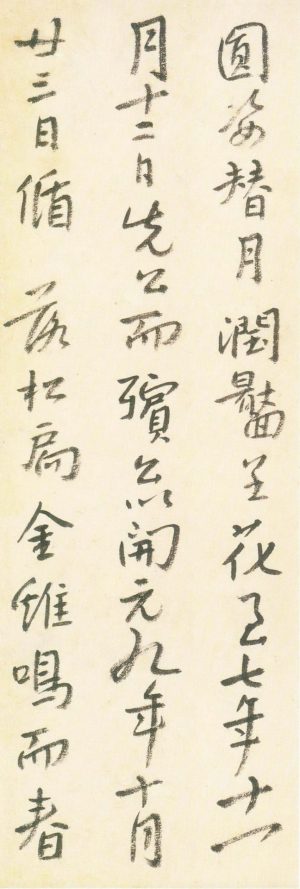 圓姿替月潤呈花七年十一
月十二日先公而殯開元九年十月
廿三日循落松扃金雉鳴而春